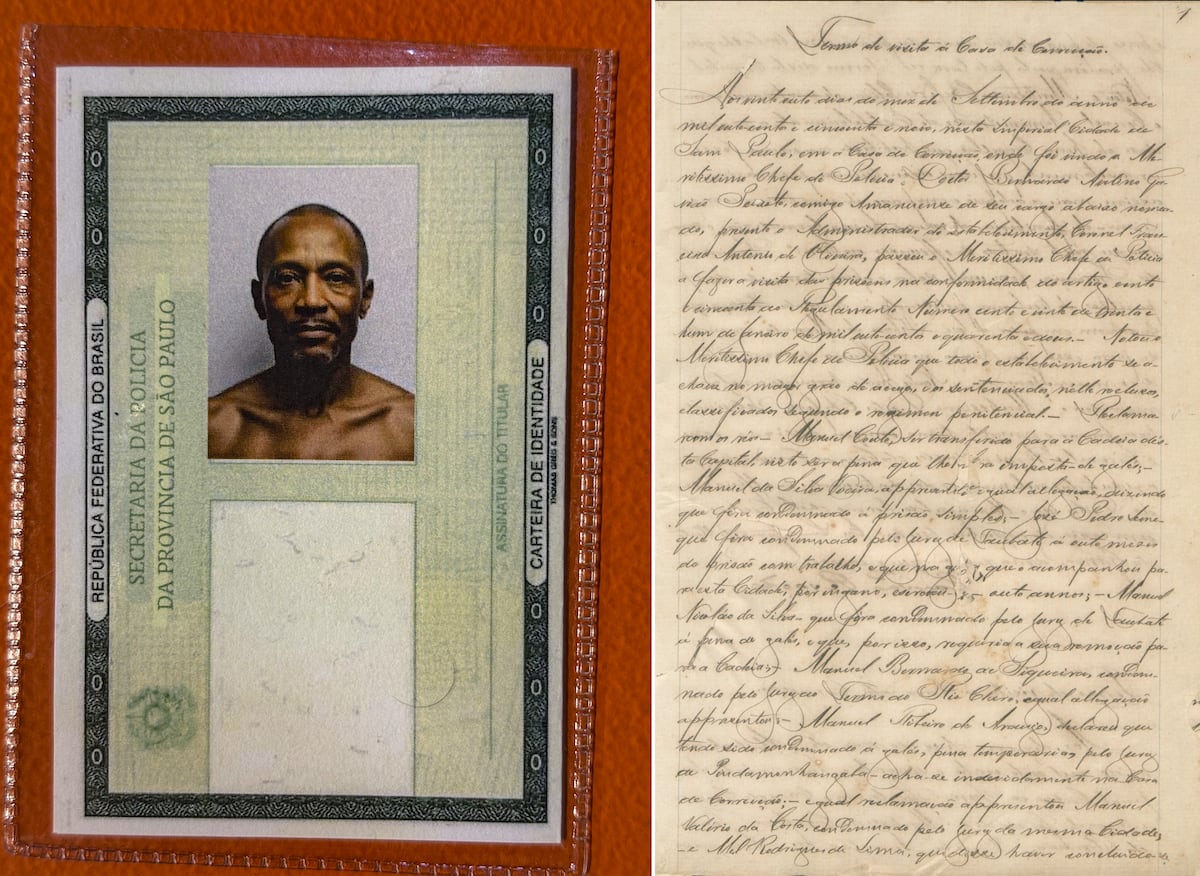 REPÚBLICA FEDERATIVA DO BRASIL
SECRETARIA DA POLICIA
DA PROVINCIA DE SÃO PAULO
ASSINATURA DO TITULAR
CARTEIRA DE IDENTIDADE
THOMAS GREG & SONS
0 0 0 0 0
0 0 0 0 0
1
Termo de visita á Casa de Correcção.
dias do mez de Settembro do anno de
mil oito centos e cincoenta e , nesta Imperial Cidade de
Sam Paulo, em a Casa de Correcção, onde foi vindo o Me-
ritissimo Chefe de Policia, Doutor Bernardo Avelino Ga-
vião Peixoto, comigo Amanuense de seu cargo abaixo nomea-
do, presente o Administrador do estabelecimento, Coronel Fran-
cisco Antonio de Oliveira, passou o Meritissimo Chefe de Policia
a fazer a visita das prisões na conformidade do artigo cento
e cincoenta do Regulamento Numero cento e vinte de trinta e
um de Janeiro de mil oito centos e quarenta e dous. — Notou o
Meritissimo Chefe de Policia que todo o estabelecimento se a-
chava no maior gráo de aceio, e os sentenciados, nelle reclusos,
classificados segundo o regimen penitencial. — Reclama-
ram os réos — Manuel Couto, ser transferido para a Cadeia des-
ta Capital, visto ser a pena que lhe imposta de galés; —
Manuel da Silva , apresentou egual allegação, dizendo
que fôra condemnado á prisão simples; — José Pedro
que fôra condemnado pelo Jury de Taubaté á oito mezes
de prisão com trabalho, e que na que o acompanhou pa-
ra esta Cidade, por engano, oito annos; — Manuel
Nicoláo da Silva — que fôra condemnado pelo Jury de Taubaté
á pena de galés, e que, por isso, requeria a sua remoção pa-
ra a Cadeia; — Manuel Bernardo de Siqueira, condem-
nado pelo Jury do Termo do Rio Claro, egual allegação
apresentou; — Manuel Ribeiro de Araujo, declarou que
tendo sido condemnado á galés, pena temporaria, pelo Jury
de Pindamonhangaba — acha-se indevidamente na Casa
de Correcção; — egual reclamação apresentou Manuel
Valerio da Costa, condemnado pelo Jury da mesma Cidade;
— e Mel Rodrigues de Lima, que disse haver concluido